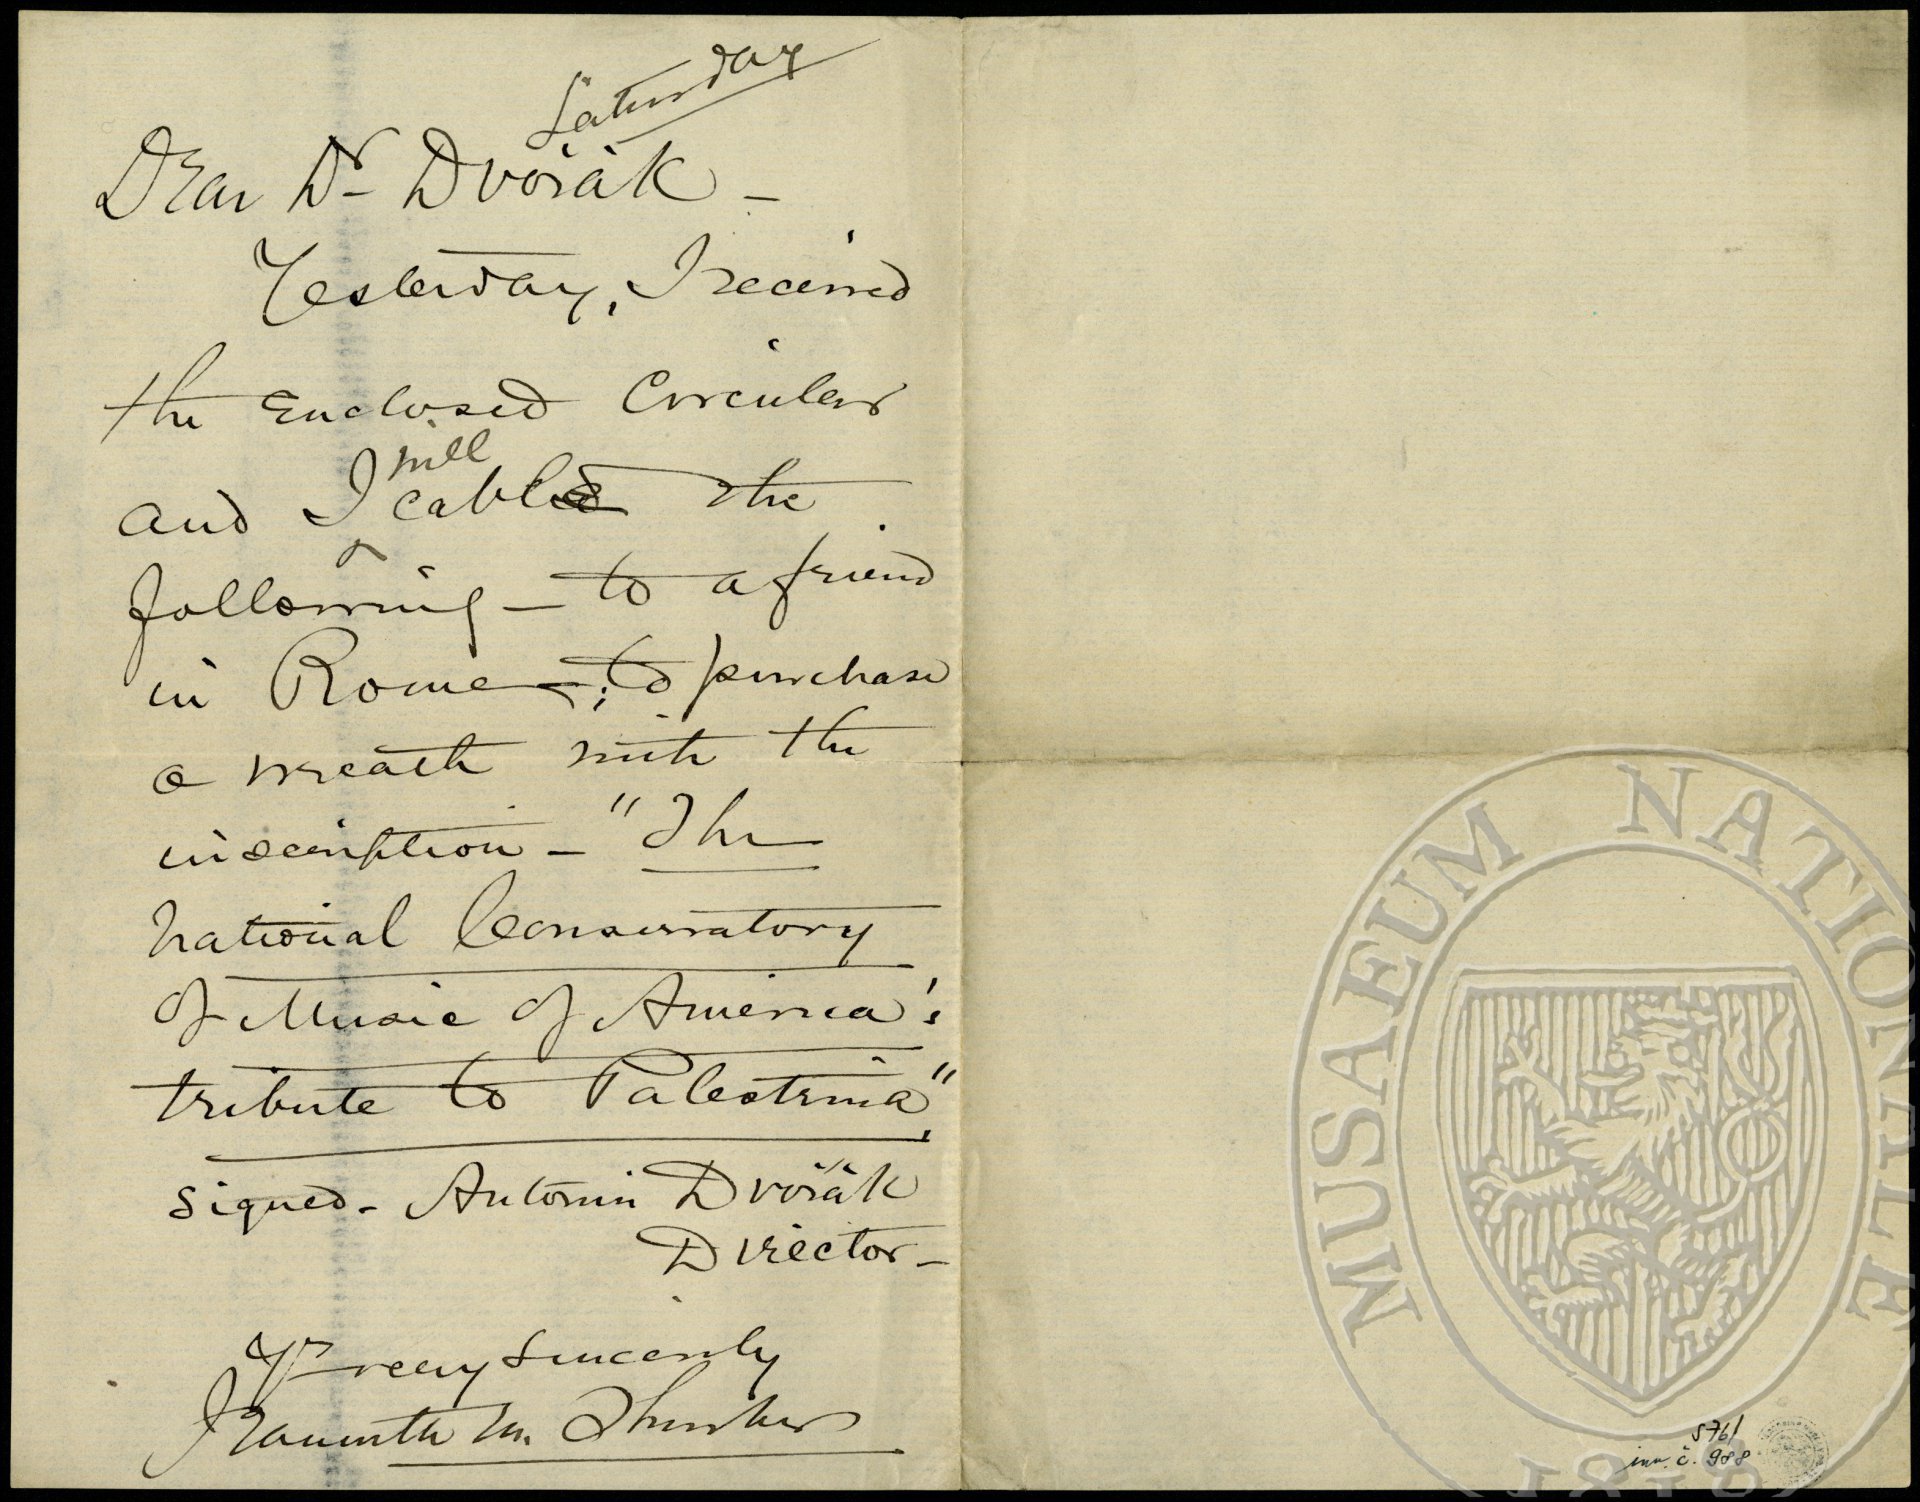 Saturday
Dear Dr Dvořák –
Yesterday, I received
the enclosed Circular
and I will cable the
following – to a friend
in Rome –; to purchase
a wreath with the
inscription – "The
National Conservatory
of Music of America's
tribute to Palestrina".
signed – Antonin Dvořák
Director –
Yr very sincerely
Jeannette M. Thurber
MUSAEUM NATIONALE
1818
S76/
inv. č. 988